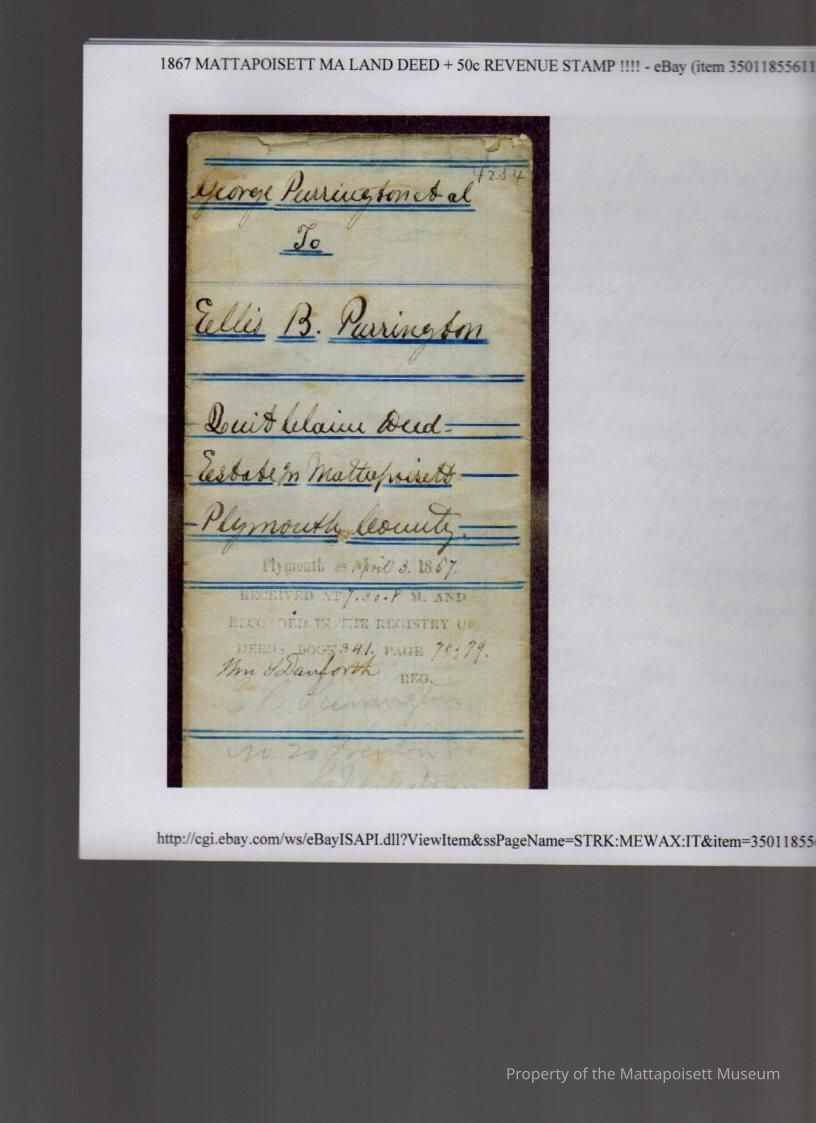 1867 MATTAPOISETT MA LAND DEED + 50c REVENUE STAMP !!!! - eBay (item 35011855611
4284
George Purrington et al
To
Ellis B. Purrington
Quit Claim Deed
Estate in Mattapoisett
Plymouth County.
Plymouth ss April 3. 1867.
RECEIVED AT 7.30 P M. AND
RECORDED IN THE REGISTRY OF
DEEDS, BOOK 341, PAGE
Wm S Danforth REG.
No 20
http://cgi.ebay.com/ws/eBayISAPI.dll?ViewItem&ssPageName=STRK:MEWAX:IT&item=350118556
Property of the Mattapoisett Museum